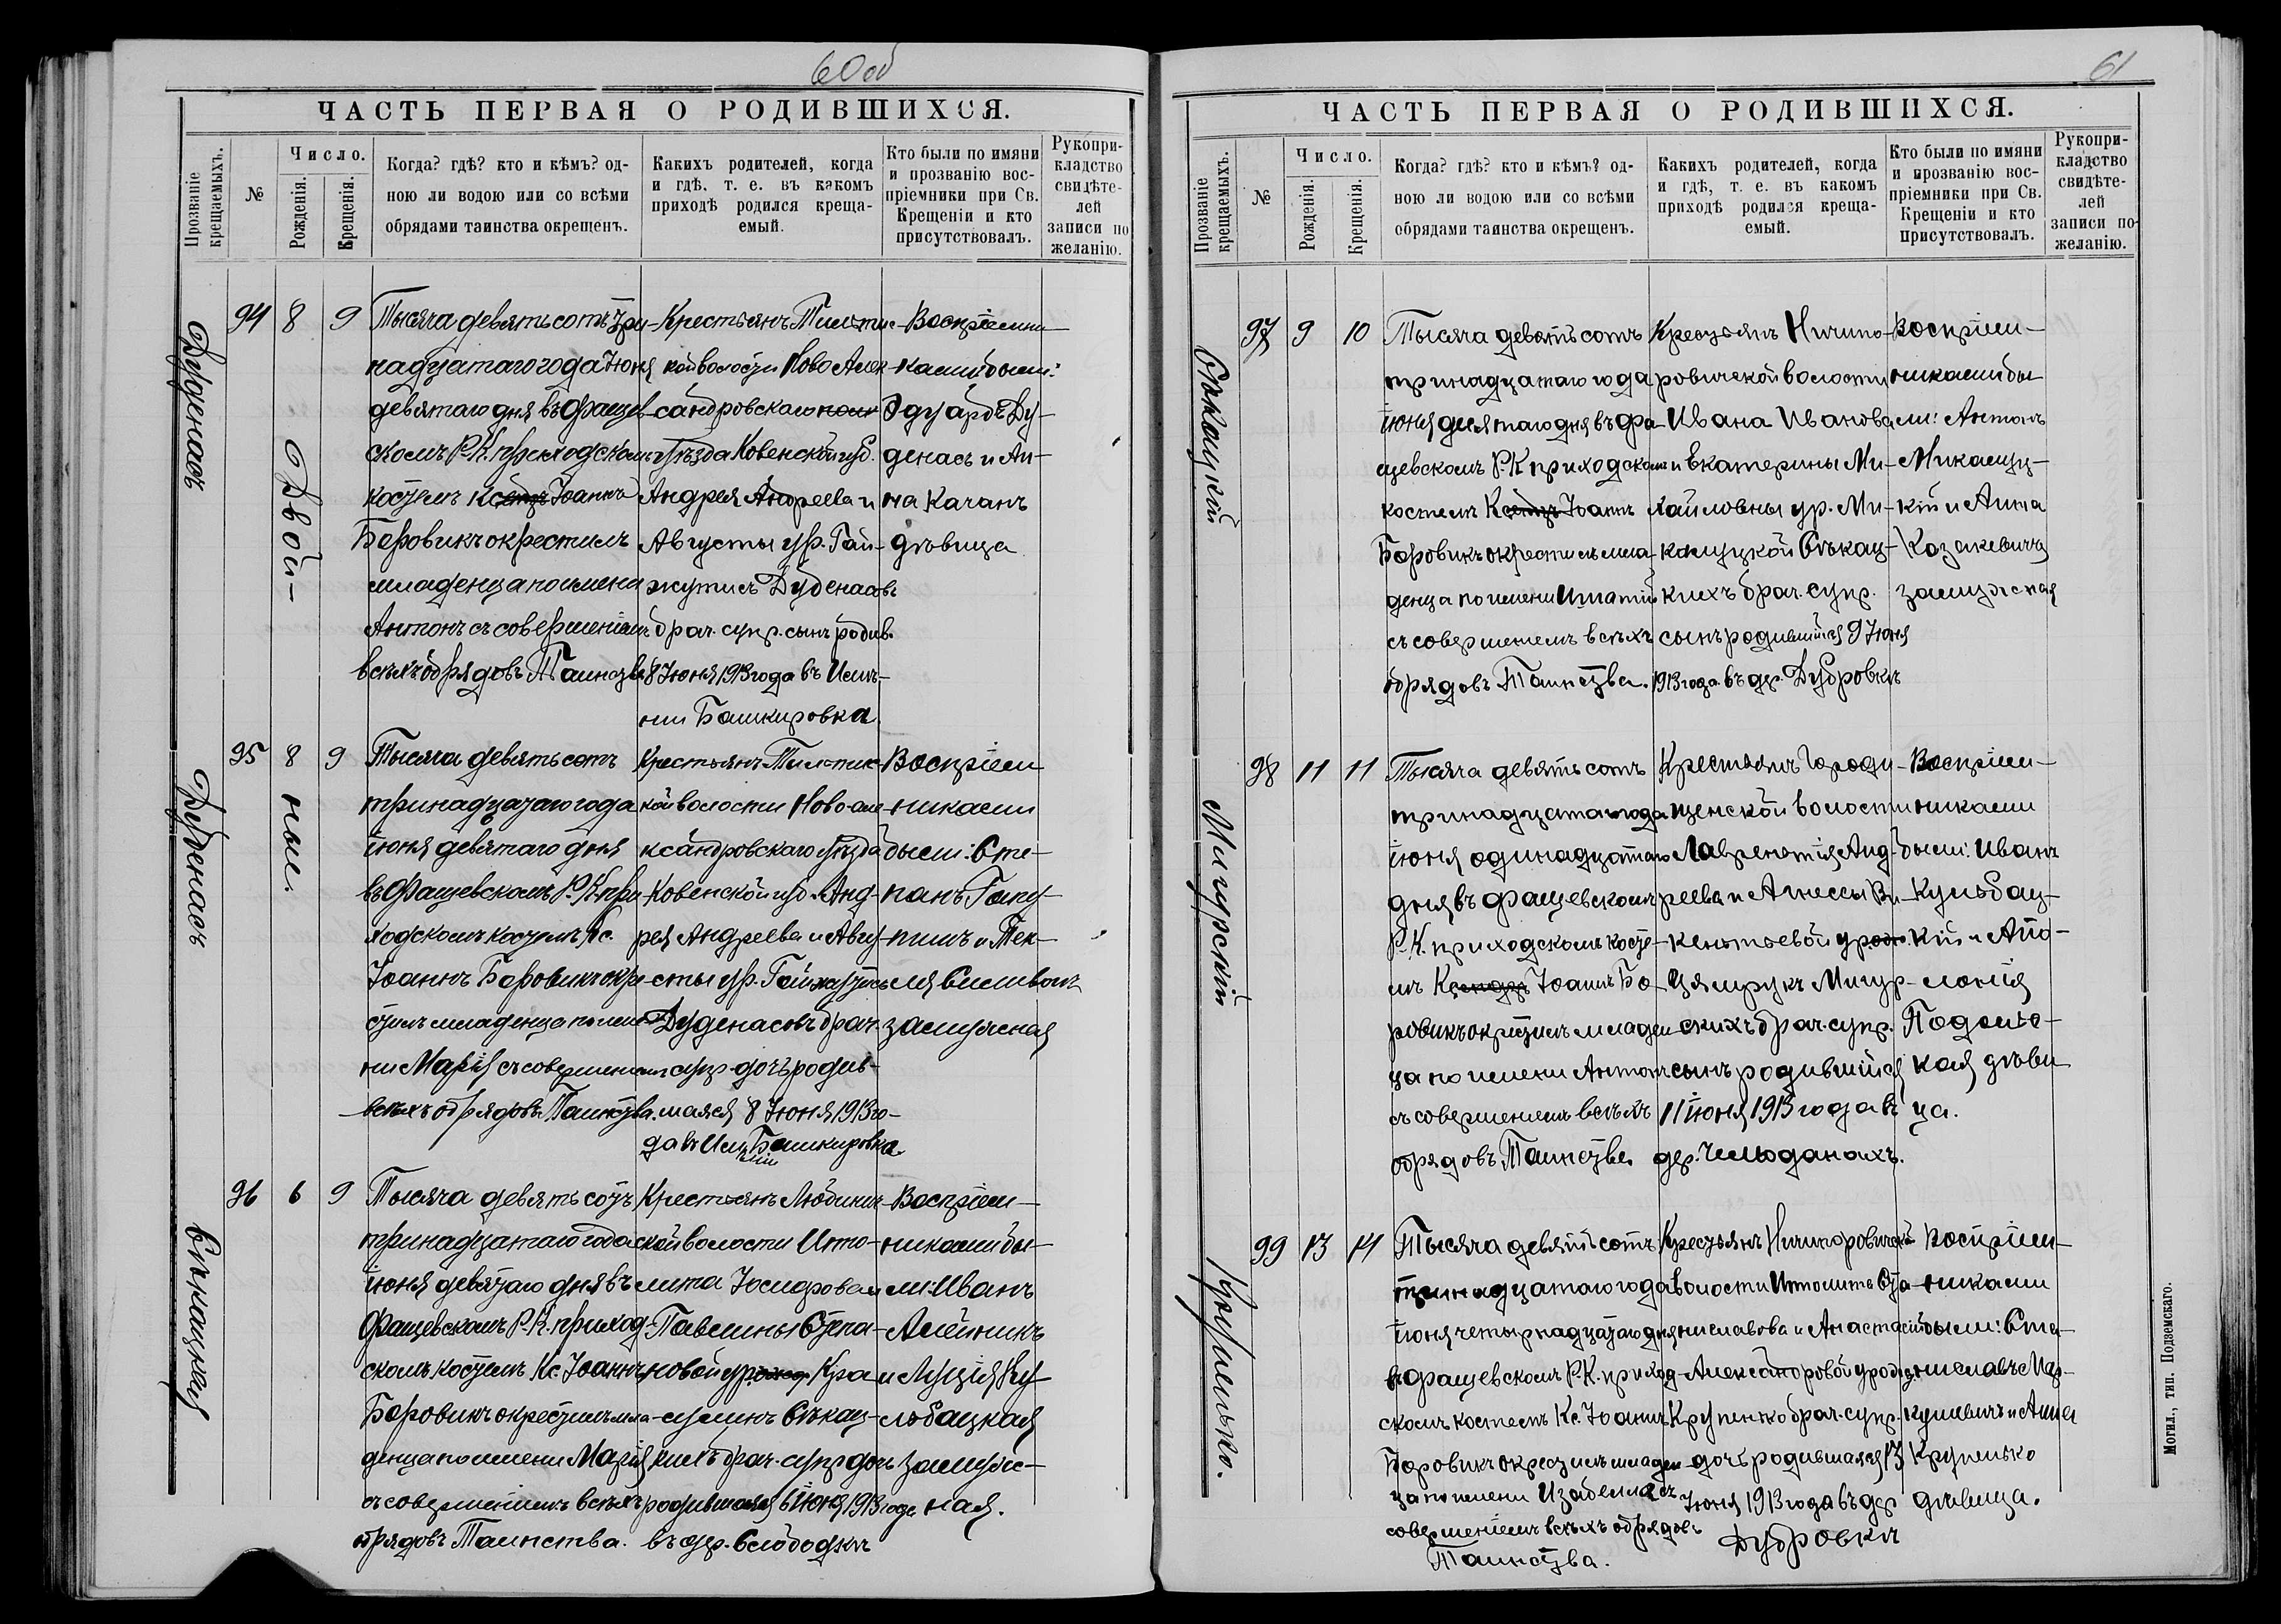 60 об
ЧАСТЬ ПЕРВАЯ О РОДИВШИХСЯ.
Прозваніе крещаемыхъ.
№
Число.
Рожденія.
Крещенія.
Когда? гдѣ? кто и кѣмъ? од-
ною ли водою или со всѣми
обрядами таинства окрещенъ.
Какихъ родителей, когда
и гдѣ, т. е. въ какомъ
приходѣ родился креща-
емый.
Кто были по имяни
и прозванію вос-
пріемники при Св.
Крещеніи и кто
присутствовалъ.
Рукопри-
кладство
свидѣте-
лей
записи по
желанію.
Дуденасъ
94
8
9
Двой-
Тысяча девятьсотъ три-
надцатаго года Іюня
девятаго дня въ Фащев-
скомъ Р.К. приходскомъ
костелѣ Ксендзъ Іоаннъ
Боровикъ окрестилъ
младенца по имени
Антонъ съ совершеніемъ
всѣхъ обрядовъ Таинства
Крестьянъ Тильтис-
кой волости Ново Алек-
сандровскаго
уѣзда Ковенской губ.
Андрея Андреева и
Августы ур. Гай-
жутисъ Дуденасовъ
брач. супр. сынъ родив.
8 Іюня 1913 года въ Имѣ-
нии Башкировка.
Воспріемни-
ками были:
Эдуардъ Ду-
денасъ и Ан-
на Качанъ
дѣвица
Дуденасъ
95
8
9
ные.
Тысяча девятьсотъ
тринадцатаго года
іюня девятаго дня
въ Фащевскомъ Р.К. при-
ходскомъ костелѣ Кс.
Іоаннъ Боровикъ окре-
стилъ младенца по име-
ни Марія съ совершеніемъ
всѣхъ обрядовъ Таинства.
Крестьянъ Тильтис-
кой волости Ново-але-
ксандровскаго уѣзда
Ковенской губ. Анд-
рея Андреева и Авгу-
сты ур. Гайжутисъ
Дуденасовъ брач.
супр. дочь родив-
шаяся 8 Іюня 1913 го-
да въ Имѣніи Башкировка.
Воспріем-
никами
были: Сте-
панъ
и Тек-
ля
замужная
Сѣкацкая
96
6
9
Тысяча девятьсотъ
тринадцатаго года
іюня девятаго дня въ
Фащевскомъ Р.К. приход-
скомъ костелѣ Кс. Іоаннъ
Боровикъ окрестилъ мла-
денца по имени Марія
съ совершеніемъ всѣхъ
обрядовъ Таинства.
Крестьянъ Любинич-
ской волости Ипо-
лита Іосифова и
Павлины Степа-
новой урожд. Кра-
Сѣкац-
кихъ брач. супр дочь
родившаяся 6 Іюня 1913 года
въ дер. Слободкѣ
Воспріем-
никами бы-
ли: Иванъ
Алейникъ
и Луція Ку-
льбацкая
замуж-
ная.
61
ЧАСТЬ ПЕРВАЯ О РОДИВШИХСЯ.
Прозваніе крещаемыхъ.
№
Число.
Рожденія.
Крещенія.
Когда? гдѣ? кто и кѣмъ? од-
ною ли водою или со всѣми
обрядами таинства окрещенъ.
Какихъ родителей, когда
и гдѣ, т. е. въ какомъ
приходѣ родился креща-
емый.
Кто были по имяни
и прозванію вос-
пріемники при Св.
Крещеніи и кто
присутствовалъ.
Рукопри-
кладство
свидѣте-
лей
записи по-
желанію.
Сѣкацкій
97
9
10
Тысяча девятьсотъ
тринадцатаго года
іюня десятаго дня въ Фа-
щевскомъ Р.К приходскомъ
костелѣ Ксендзъ Іоаннъ
Боровикъ окрестилъ мла-
денца по имени Игнатій
съ совершеніемъ всѣхъ
обрядовъ Таинства.
Крестьянъ Ничипо-
ровичской волости
Ивана Иванова
и Екатерины Ми-
хайловны ур. Ми-
калуцкой Сѣкац-
кихъ брач. супр.
сынъ родившійся 9 Іюня
1913 года въ дер. Дубровкѣ
Воспріем-
никами бы-
ли: Антонъ
Микалуц-
кій и Анна
Казакевичъ
замужная
Мигурскій
98
11
11
Тысяча девятьсотъ
тринадцатаго года
іюня одинадцатаго
дня въ Фащевскомъ
Р.К. приходскомъ косте-
лѣ Ксендзъ Іоаннъ Бо-
ровикъ окрестилъ младен-
ца по имени Антонъ
съ совершеніемъ всѣхъ
обрядовъ Таинства
Крестьянъ Городи-
щенской волости
Лаврентія Анд-
реева и Агнессы Ви-
кентьевой урожд.
Мигур-
скихъ брач. супр.
сынъ родившійся
11 іюня 1913 года въ
дер. Чемоданахъ.
Воспріем-
никами
были: Иванъ
Кульбац-
кій и Апо-
лонія
дѣви
ца.
Крупенько.
99
13
14
Тысяча девятьсотъ
тринадцатаго года
іюня четырнадцатаго дня
въ Фащевскомъ Р.К. приход-
скомъ костелѣ Кс. Іоаннъ
Боровикъ окрестилъ младен-
ца по имени Изабелла съ
совершеніемъ всѣхъ обрядовъ
Таинства.
Крестьянъ Ничипоровичской
волости Ипполита Ста-
ниславова и Анастасіи
Александровой урожд.
Крупенько брач. супр.
дочь родившаяся 13
Іюня 1913 года въ дер
Дубровкѣ
Воспріем-
никами
были: Ста-
ниславъ Мац-
кулевичъ и Анна
Крупенько
дѣвица.
Могил., тип. Подземскаго.